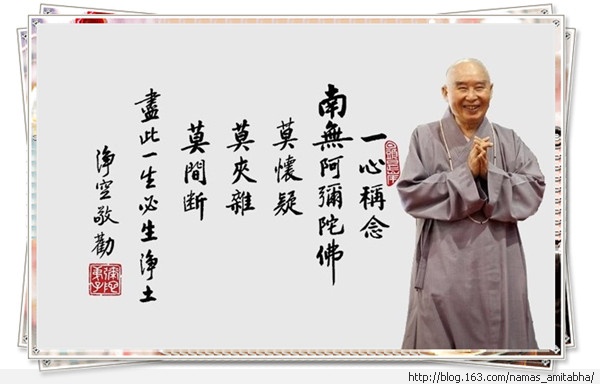 一心稱念
南無阿彌陀佛
莫懷疑
莫夾雜
莫間断
盡此一生必生淨土
淨空敬勸
http://blog.163.com/namas_amitabha/